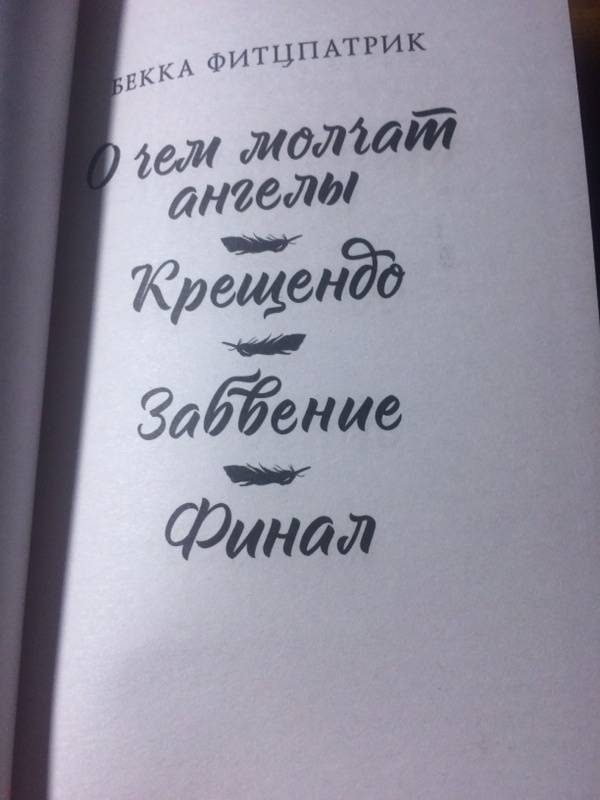 БЕККА ФИТЦПАТРИК
О чем молчат
ангелы
Крещендо
Забвение
Финал